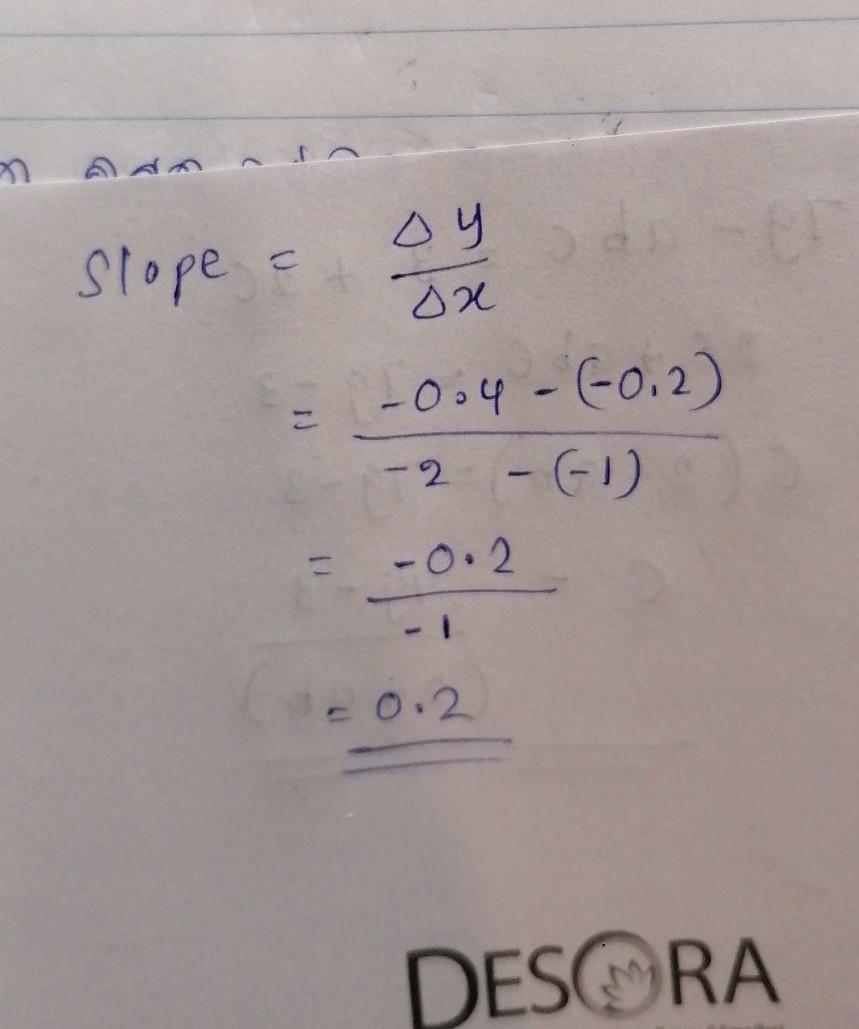 Slope = Δy
Δx
= -0.4 - (-0.2)
-2 - (-1)
= -0.2
-1
= 0.2
DESORA